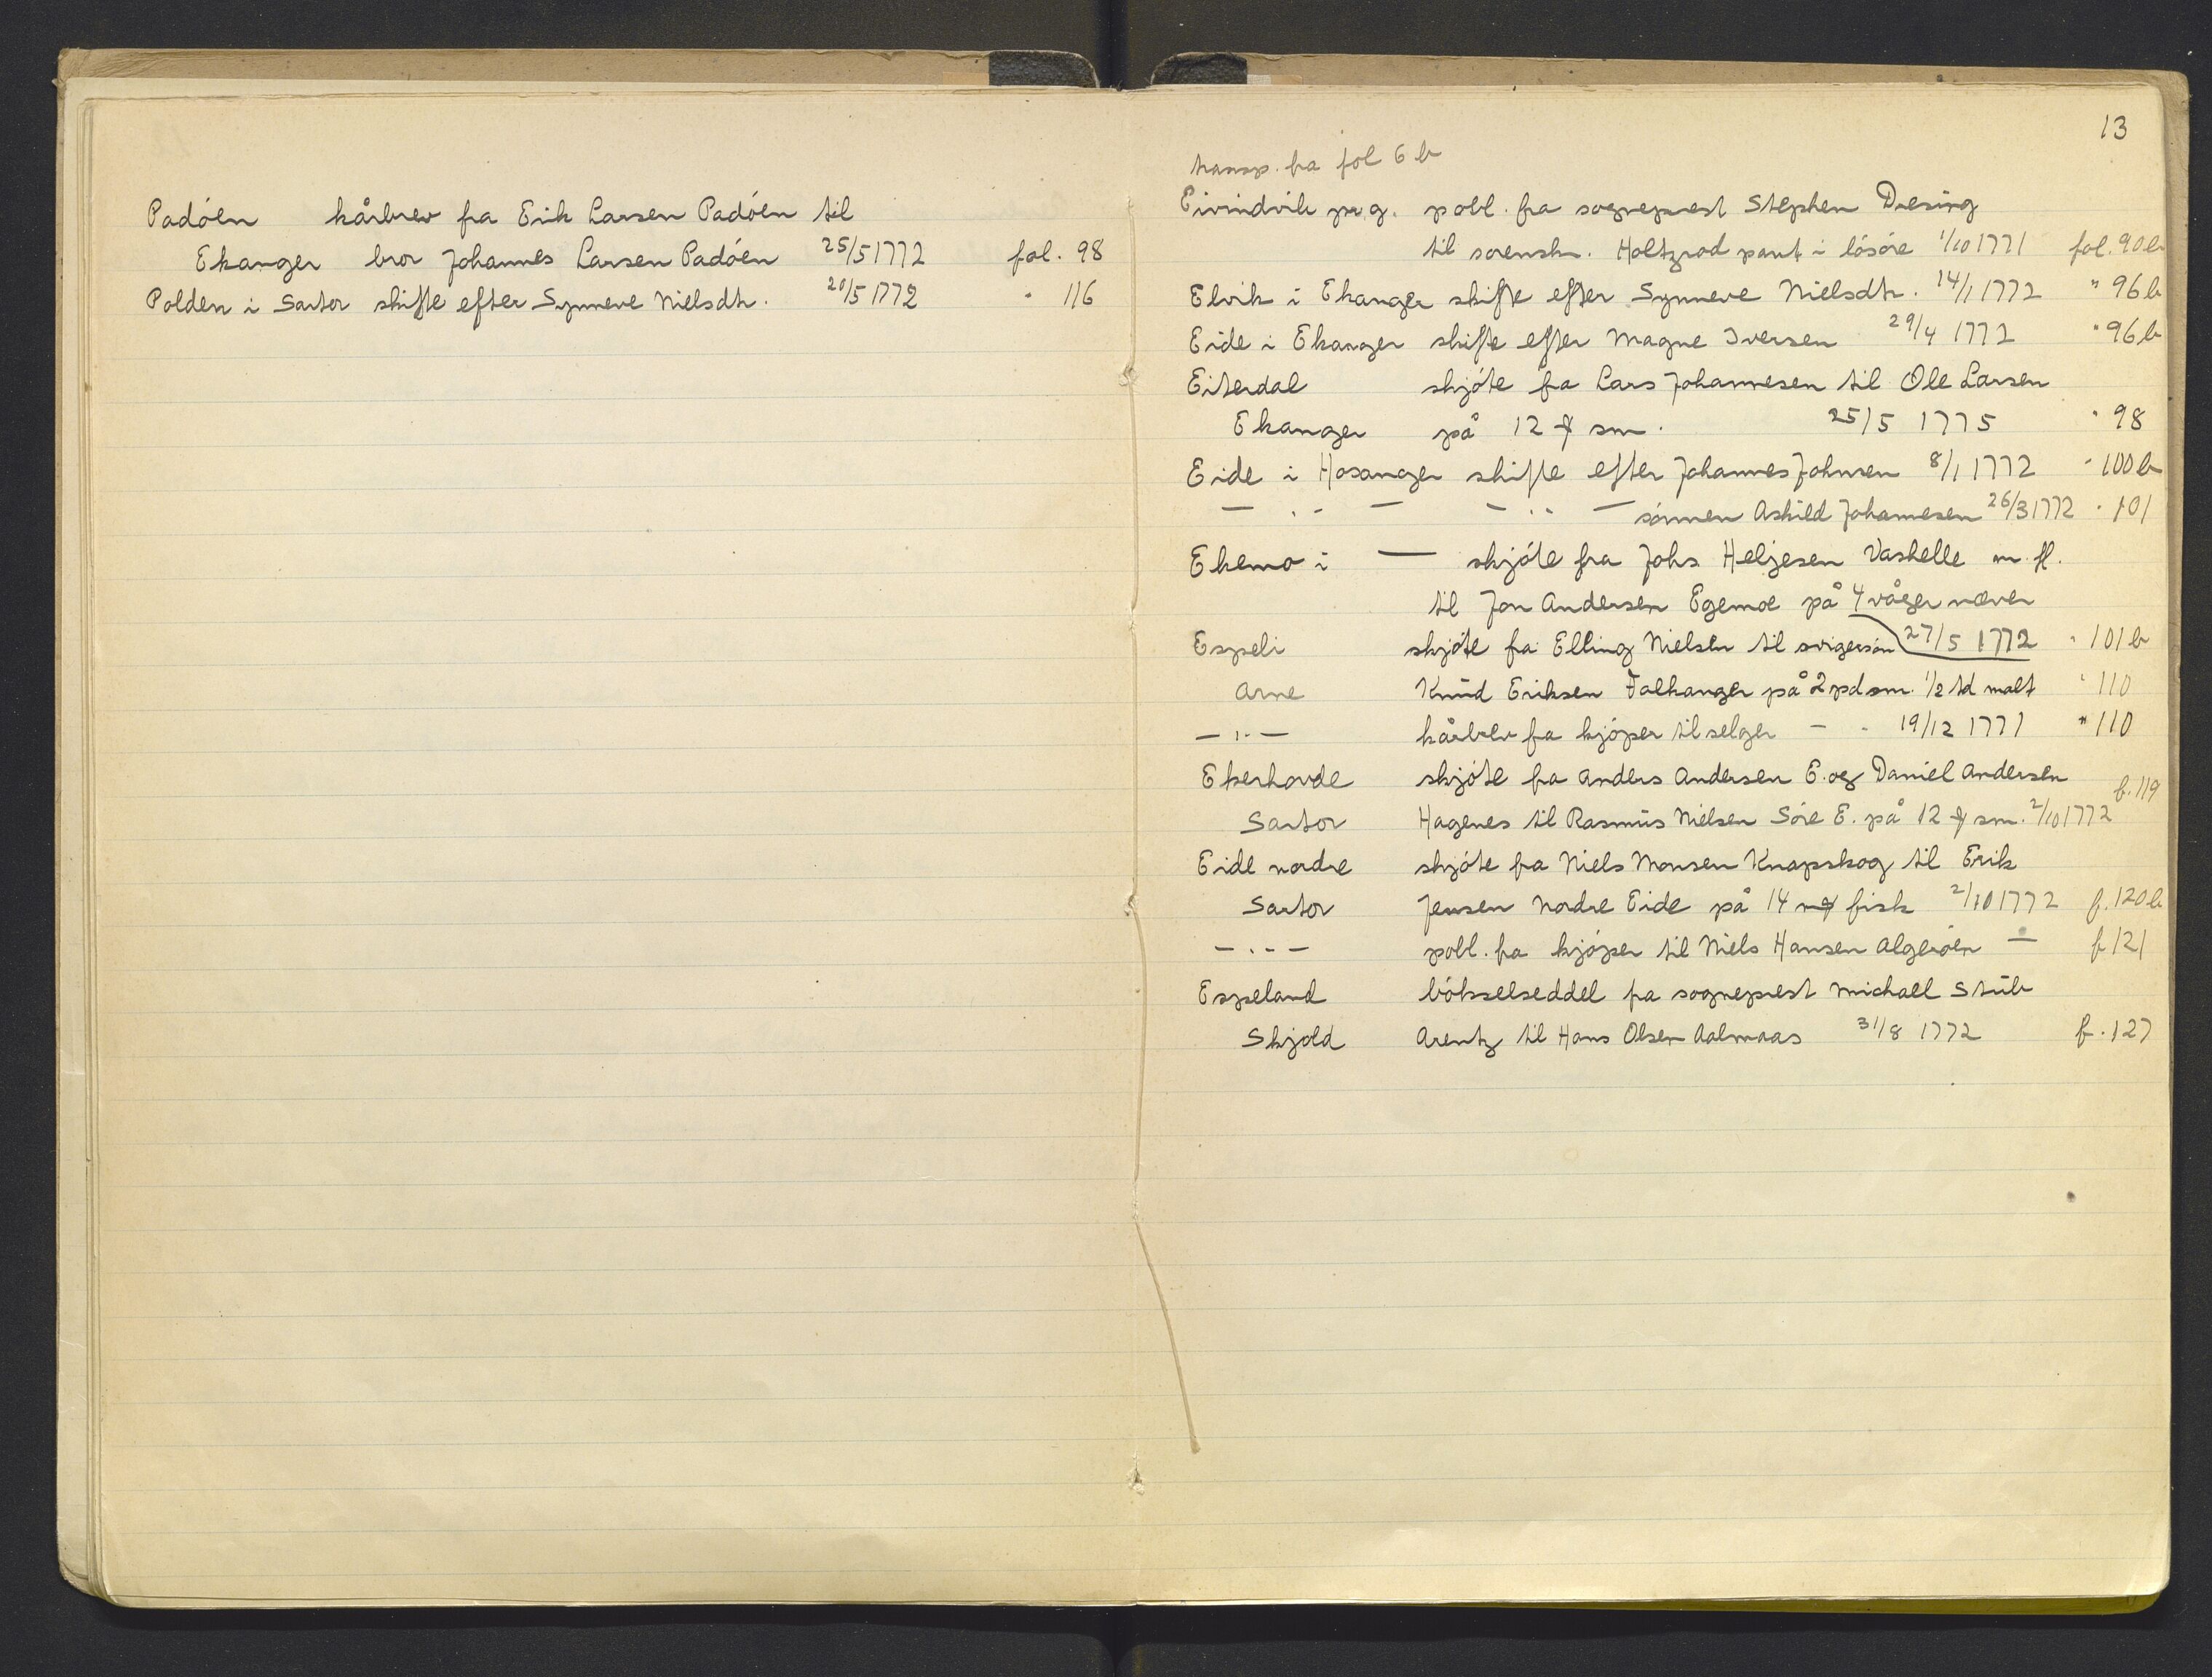 Padöen kårbrev fra Erik Larsen Padöen til
Ekanger bror Johannes Larsen Padöen 25/5 1772 fol. 98
Polden i Sartor skifte efter Synneve Nielsdtr. 20/5 1772 " 116
13
transp. fra fol 6 b
Eivindvik pr.g. pobl. fra sogneprest Stephen Dresing
til sorenskr. Holtzrod pant i lösöre 1/10 1771 fol. 90 b
Elvik i Ekanger skifte efter Synneve Nielsdtr. 14/1 1772 " 96 b
Eide i Ekanger skifte efter Magne Iversen 29/4 1772 " 96 b
Eiterdal skjöte fra Lars Johannesen til Ole Larsen
Ekanger på 12 sm. 25/5 1775 " 98
Eide i Hosanger skifte efter Johannes Johnsen 8/1 1772 " 100 b
— " — — — " — sönnen Askild Johannesen 26/3 1772 " 101
Ekemo i — skjöte fra Johs Heljesen Vaskelle m. fl.
til Jon Andersen Egemoe på 4 våger næver
Espeli skjöte fra Elling Nielsen til svigersön 27/5 1772 " 101 b
Arne Knud Eriksen Falkanger på 2 pd sm. 1/2 td malt " 110
— " — kårbrev fra kjöper til selger — " 19/12 1771 " 110
Ekerhovde skjöte fra Anders Andersen E. og Daniel Andersen f. 119
Sartor Hagenes til Rasmus Nielsen Söre E. på 12 sm. 2/10 1772
Eide nordre skjöte fra Niels Monsen Knapskog til Erik
Sartor Jensen Nordre Eide på 14 fisk 2/10 1772 f. 120 b
— " — pobl. fra kjöper til Niels Hansen Algeröen — f 121
Espeland bökselseddel fra sogneprest Michael Stub
Skjold Arentz til Hans Olsen Aalmaas 31/8 1772 f. 127